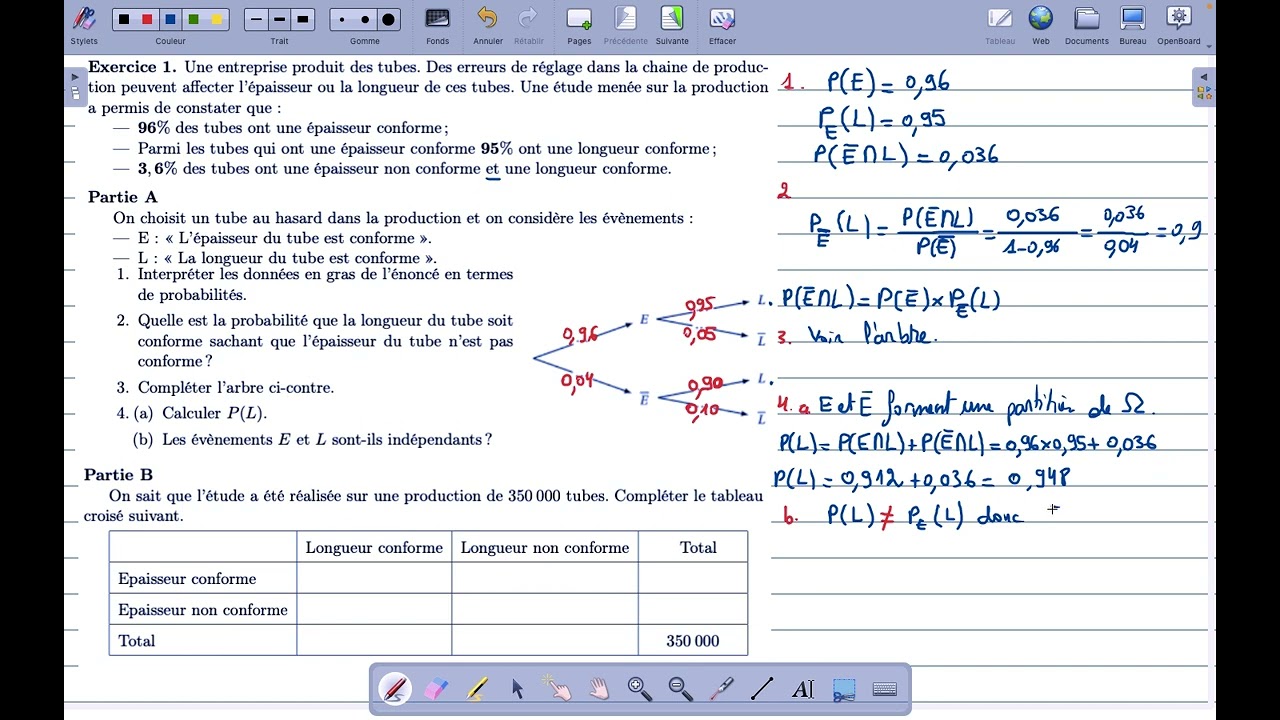 Stylets Couleur Trait Gomme Fonds Annuler Rétablir Pages Précédente Suivante Effacer Tableau Web Documents Bureau OpenBoard
Exercice 1. Une entreprise produit des tubes. Des erreurs de réglage dans la chaine de produc-
tion peuvent affecter l'épaisseur ou la longueur de ces tubes. Une étude menée sur la production
a permis de constater que :
— 96% des tubes ont une épaisseur conforme ;
— Parmi les tubes qui ont une épaisseur conforme 95% ont une longueur conforme ;
— 3,6% des tubes ont une épaisseur non conforme et une longueur conforme.
Partie A
On choisit un tube au hasard dans la production et on considère les évènements :
— E : « L'épaisseur du tube est conforme ».
— L : « La longueur du tube est conforme ».
1. Interpréter les données en gras de l'énoncé en termes
de probabilités.
2. Quelle est la probabilité que la longueur du tube soit
conforme sachant que l'épaisseur du tube n'est pas
conforme ?
3. Compléter l'arbre ci-contre.
4. (a) Calculer P(L).
(b) Les évènements E et L sont-ils indépendants ?
0,95 L
0,96 E
0,05 L̅
0,90 L
0,04 E̅
0,10 L̅
Partie B
On sait que l'étude a été réalisée sur une production de 350 000 tubes. Compléter le tableau
croisé suivant.
Longueur conforme Longueur non conforme Total
Epaisseur conforme
Epaisseur non conforme
Total 350 000
1. P(E) = 0,96
P_E(L) = 0,95
P(E̅∩L) = 0,036
2
P_E̅(L) = P(E̅∩L)/P(E̅) = 0,036/(1-0,96) = 0,036/0,04 = 0,9
P(E̅∩L) = P(E̅) × P_E̅(L)
3. Voir l'arbre.
4. a E et E̅ forment une partition de Ω.
P(L) = P(E∩L) + P(E̅∩L) = 0,96×0,95 + 0,036
P(L) = 0,912 + 0,036 = 0,948
b. P(L) ≠ P_E(L) donc